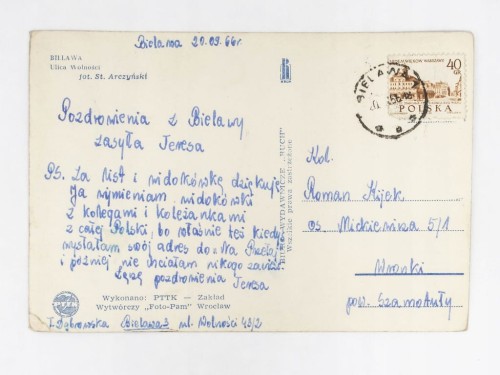 Bielawa 20.09.66r.
BIELAWA
Ulica Wolności
fot. St. Arczyński
RUCH
40
GR
POLSKA
BIELAWA 1
Pozdrowienia z Bielawy
zasyła Teresa
Ps. Za list i widokówkę dziękuję
Ja wymieniam widokówki
z kolegami i koleżankami
z całej Polski, bo właśnie też kiedyś
wysłałam swój adres do "Na Przełaj"
i później nie chciałam nikogo
Łączę pozdrowienia Teresa
BIURO WYDAWNICZE „RUCH"
Wszelkie prawa zastrzeżone
Kol.
Roman Kijek
os. Mickiewicza 5/1
Wronki
pow. Szamotuły
Wykonano: PTTK — Zakład
Wytwórczy „Foto-Pam" Wrocław
T. Dąbrowska Bielawa 3 ul. Wolności 43/2